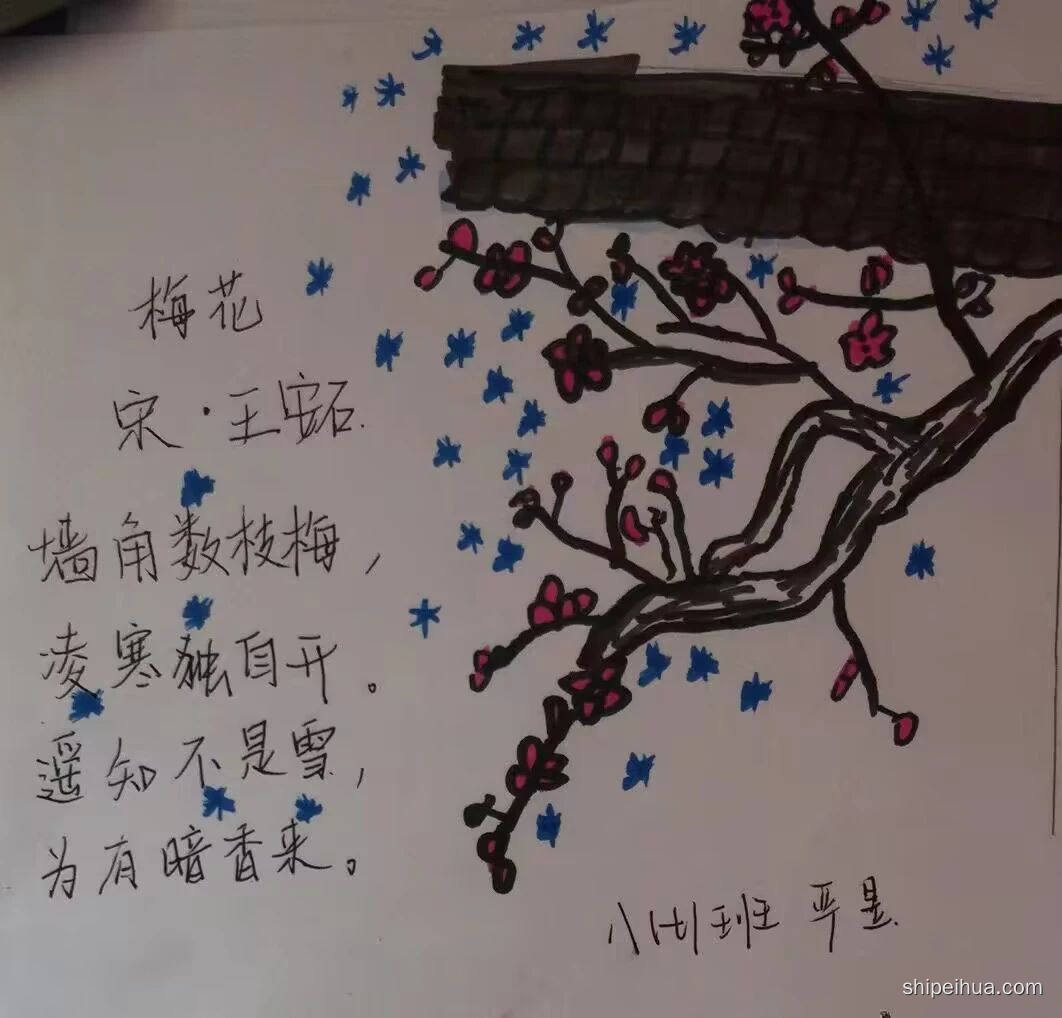 梅花
宋·王安石
墙角数枝梅，
凌寒独自开。
遥知不是雪，
为有暗香来。
八(七)班 严
shipeihua.com